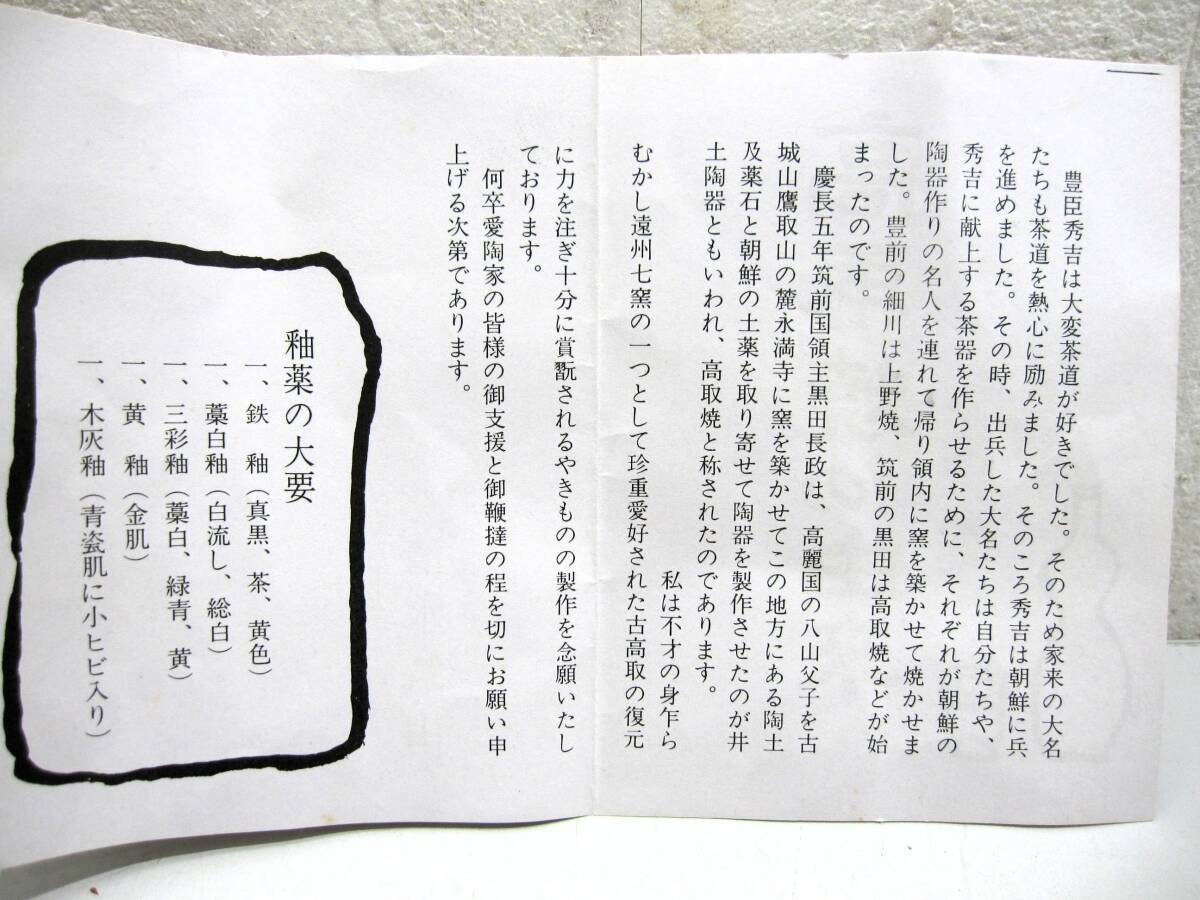 豊臣秀吉は大変茶道が好きでした。そのため家来の大名
たちも茶道を熱心に励みました。そのころ秀吉は朝鮮に兵
を進めました。その時、出兵した大名たちは自分たちや、
秀吉に献上する茶器を作らせるために、それぞれが朝鮮の
陶器作りの名人を連れて帰り領内に窯を築かせて焼かせま
した。豊前の細川は上野焼、筑前の黒田は高取焼などが始
まったのです。
慶長五年筑前国領主黒田長政は、高麗国の八山父子を古
城山鷹取山の麓永満寺に窯を築かせてこの地方にある陶土
及薬石と朝鮮の土薬を取り寄せて陶器を製作させたのが井
土陶器ともいわれ、高取焼と称されたのであります。
私は不才の身乍ら
むかし遠州七窯の一つとして珍重愛好された古高取の復元
に力を注ぎ十分に賞翫されるやきものの製作を念願いたし
ております。
何卒愛陶家の皆様の御支援と御鞭撻の程を切にお願い申
上げる次第であります。
釉薬の大要
一、鉄　釉（真黒、茶、黄色）
一、藁白釉（白流し、総白）
一、三彩釉（藁白、緑青、黄）
一、黄　釉（金肌）
一、木灰釉（青瓷肌に小ヒビ入り）